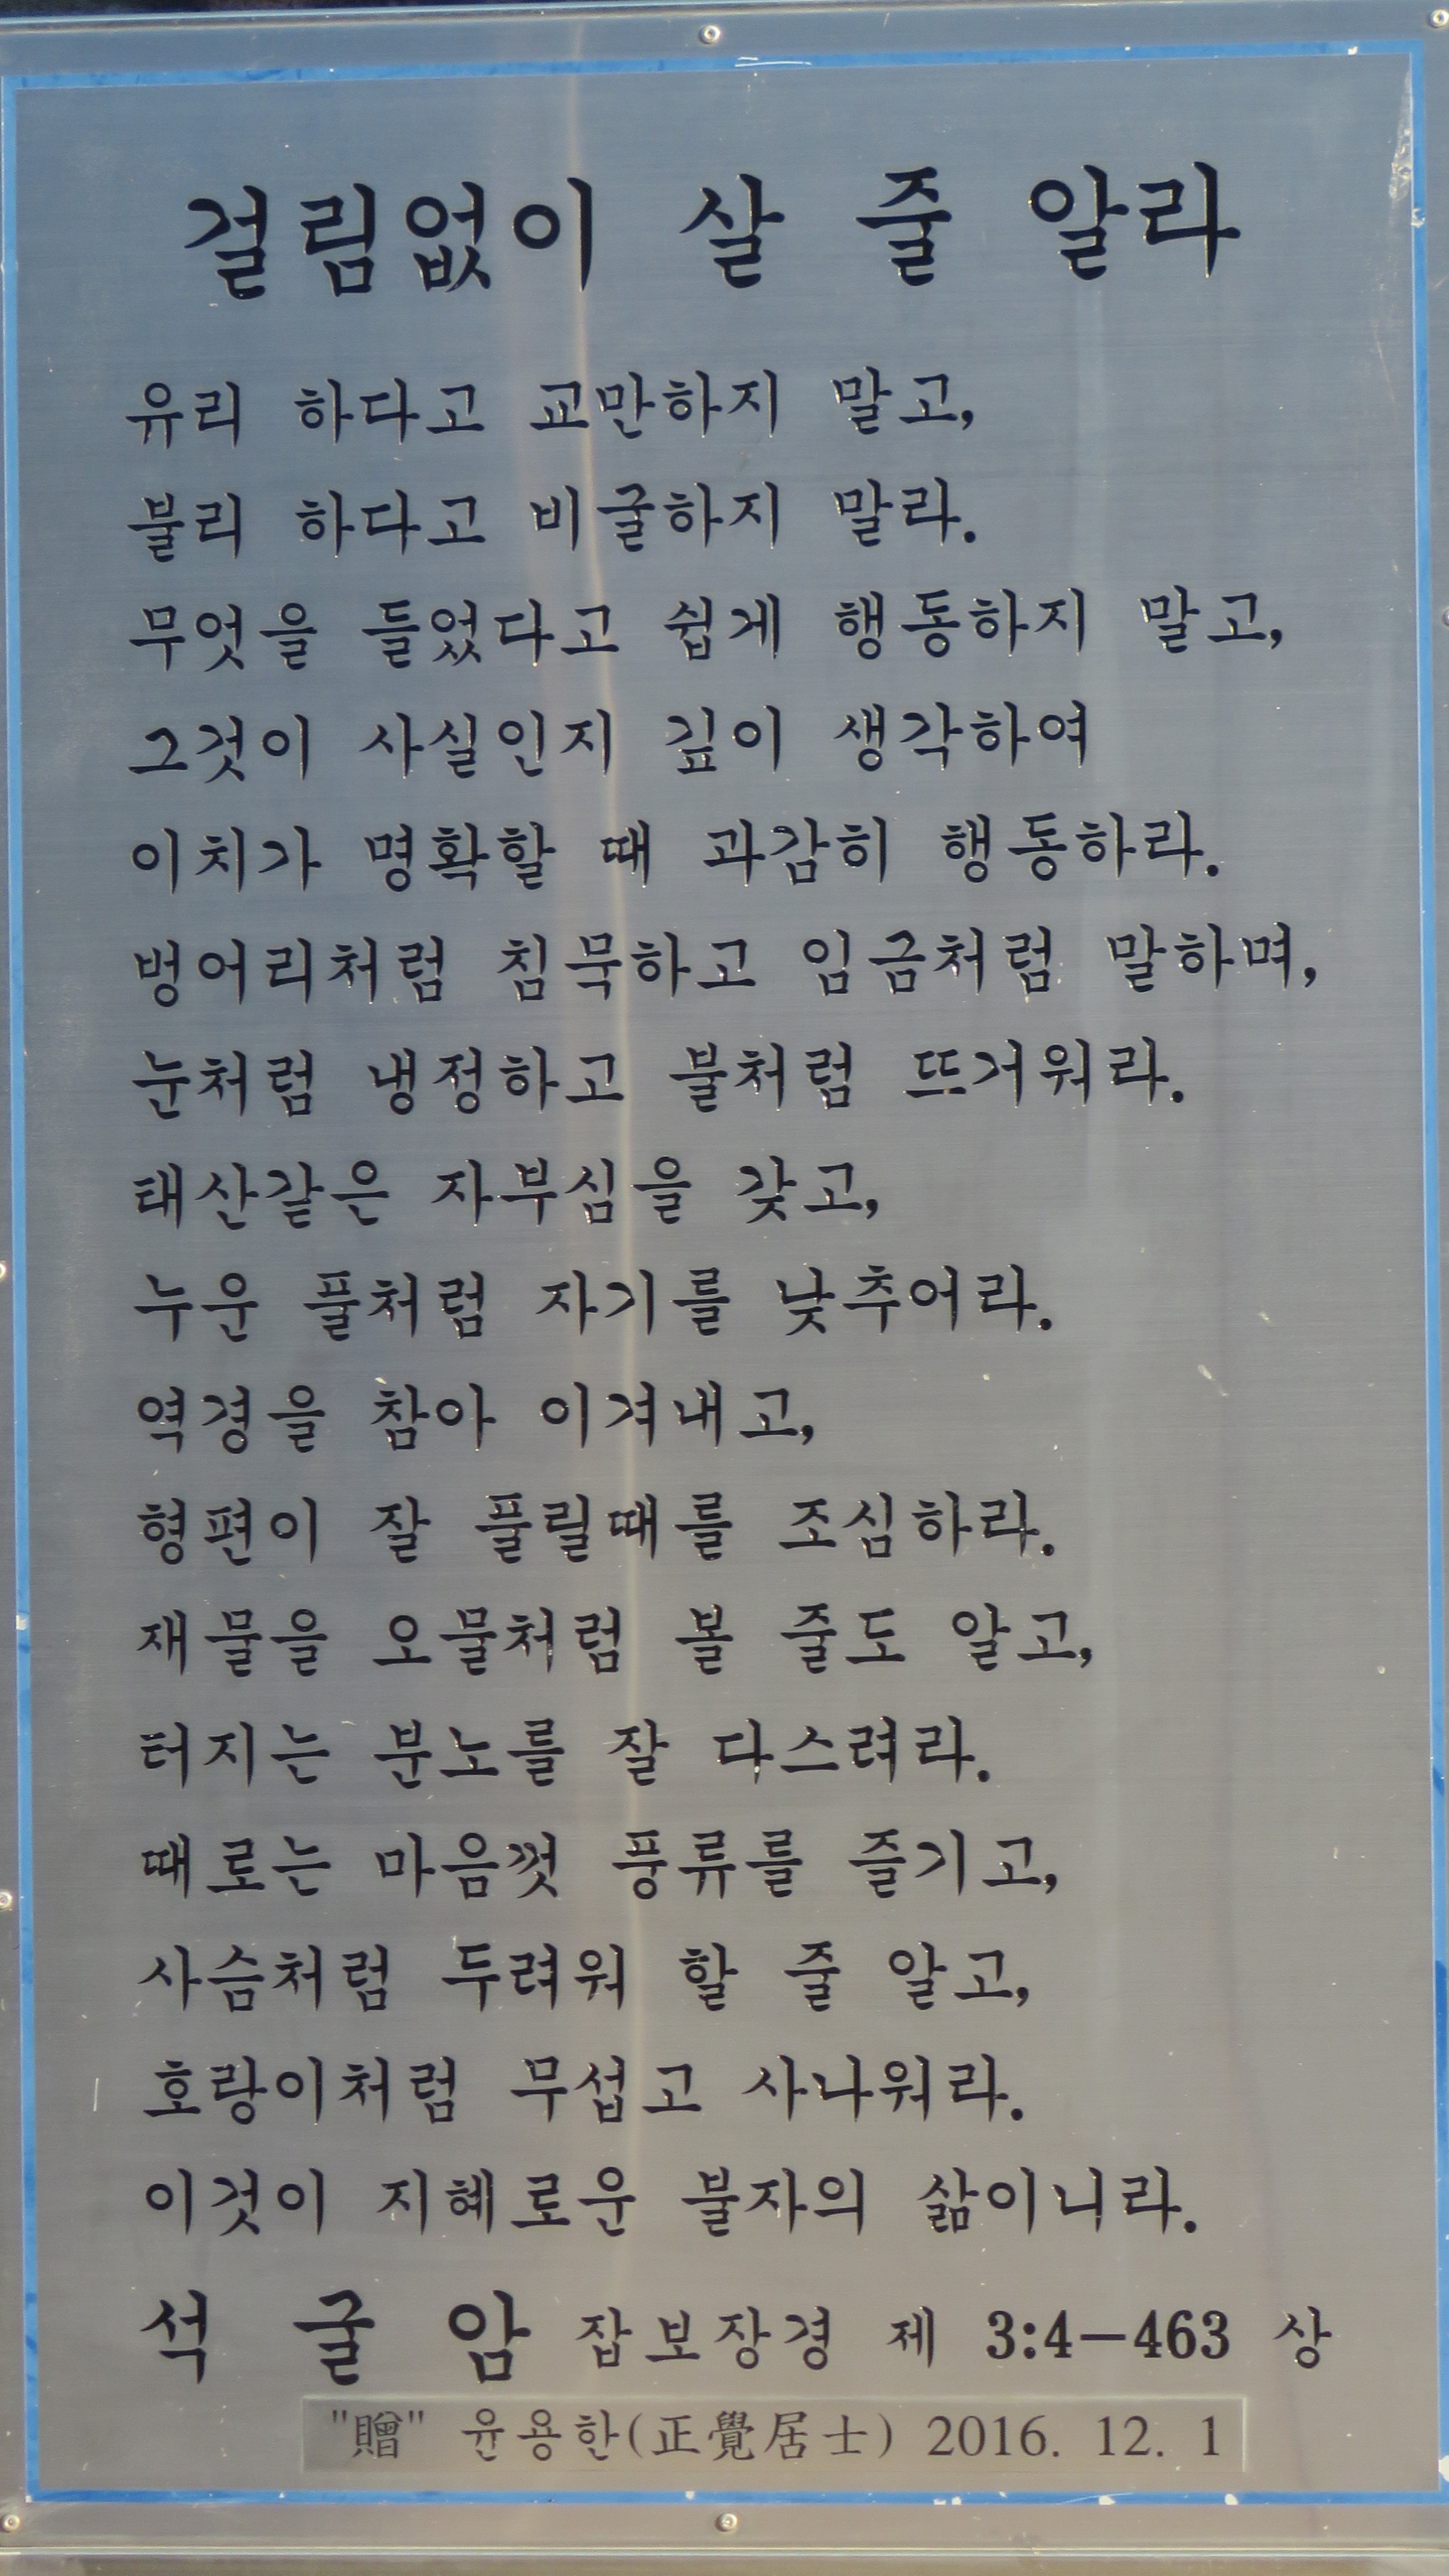 걸림없이 살 줄 알라
유리 하다고 교만하지 말고,
불리 하다고 비굴하지 말라.
무엇을 들었다고 쉽게 행동하지 말고,
그것이 사실인지 깊이 생각하여
이치가 명확할 때 과감히 행동하라.
벙어리처럼 침묵하고 임금처럼 말하며,
눈처럼 냉정하고 불처럼 뜨거워라.
태산같은 자부심을 갖고,
누운 풀처럼 자기를 낮추어라.
역경을 참아 이겨내고,
형편이 잘 풀릴때를 조심하라.
재물을 오물처럼 볼 줄도 알고,
터지는 분노를 잘 다스려라.
때로는 마음껏 풍류를 즐기고,
사슴처럼 두려워 할 줄 알고,
호랑이처럼 무섭고 사나워라.
이것이 지혜로운 불자의 삶이니라.
석 굴 암 잡보장경 제 3:4-463 상
"贈" 윤용한(正覺居士) 2016. 12. 1